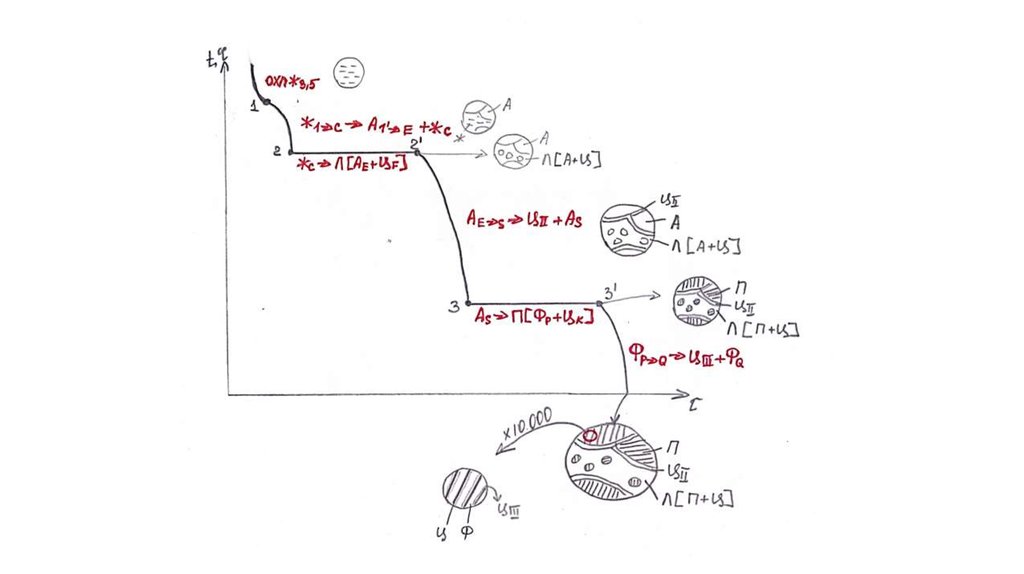 t,°C
охл ж3,5
1
ж1→C → A1'→E + жC
A
2
2'
жC → Л[AE+ЦF]
A
Л[A+Ц]
AE→S → ЦII + AS
ЦII
A
Л[A+Ц]
3
3'
AS → П[ФP+ЦK]
П
ЦII
Л[П+Ц]
ФP→Q → ЦIII + ФQ
τ
x10.000
П
ЦII
Л[П+Ц]
ЦIII
Ц Ф